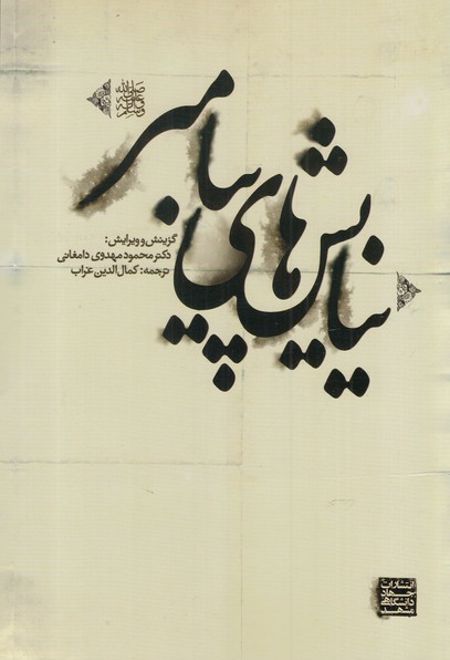 نیایش‌های پیامبر
صلی الله
علیه و آله
وسلم
گزینش و ویرایش:
دکتر محمود مهدوی دامغانی
ترجمه: کمال‌الدین غراب
انتشارات
جهاد
دانشگاهی
مشهد